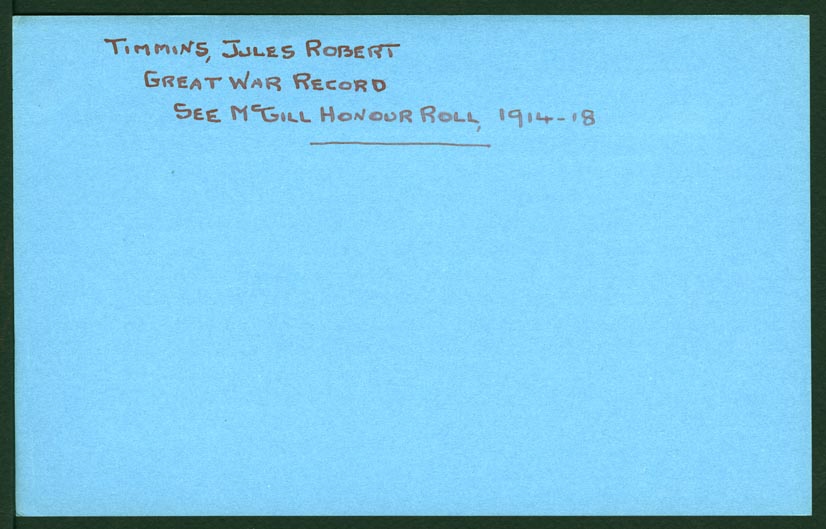 TIMMINS, JULES ROBERT
GREAT WAR RECORD
SEE McGILL HONOUR ROLL, 1914-18